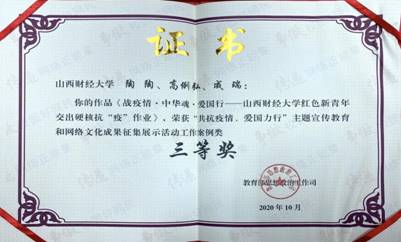 证书
山西财经大学 陶 陶、高俐弘、成 瑞：
你的作品《战疫情·中华魂·爱国行——山西财经大学红色新青年
交出硬核抗“疫”作业》，荣获“共抗疫情、爱国力行”主题宣传教育
和网络文化成果征集展示活动工作案例类
三等奖
教育部思想政治工作司
2020 年 10 月